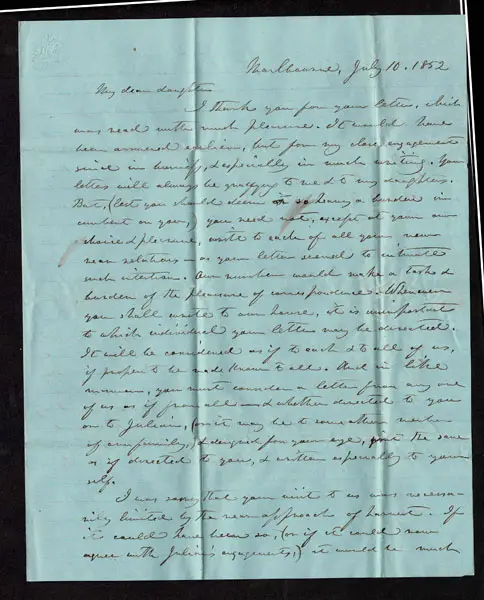 Marlbourne, July 10. 1852
My dear daughter
I thank you for your letter, which
was read with much pleasure. It would have
been answered earlier, but for my close engagement
since in harvest, & especially in much writing. Your
letters will always be gratifying to me & to my daughters.
But, (lest you should deem so heavy a burden in-
cumbent on you,) you need not, except at your own
choice & pleasure, write to each of all your new
near relations — as your letter seemed to intimate
such intention. Our number would make a task &
burden of the pleasure of correspondence. Whenever
you shall write to our house, it is unimportant
to which individual your letter may be directed.
It will be considered as if to each & to all of us,
if proper to be made known to all. And in like
manner, you must consider a letter from any one
of us as if from all — and whether directed to you
or to Julian, (or it may be to some other member
of our family,) & designed for your eye, the same
as if directed to you, & written especially to your-
self.
I was sorry that your visit to us was necessa-
rily limited by the near approach of harvest. If
it could have been so, (or if it could now
agree with Julian's engagements,) it would be much